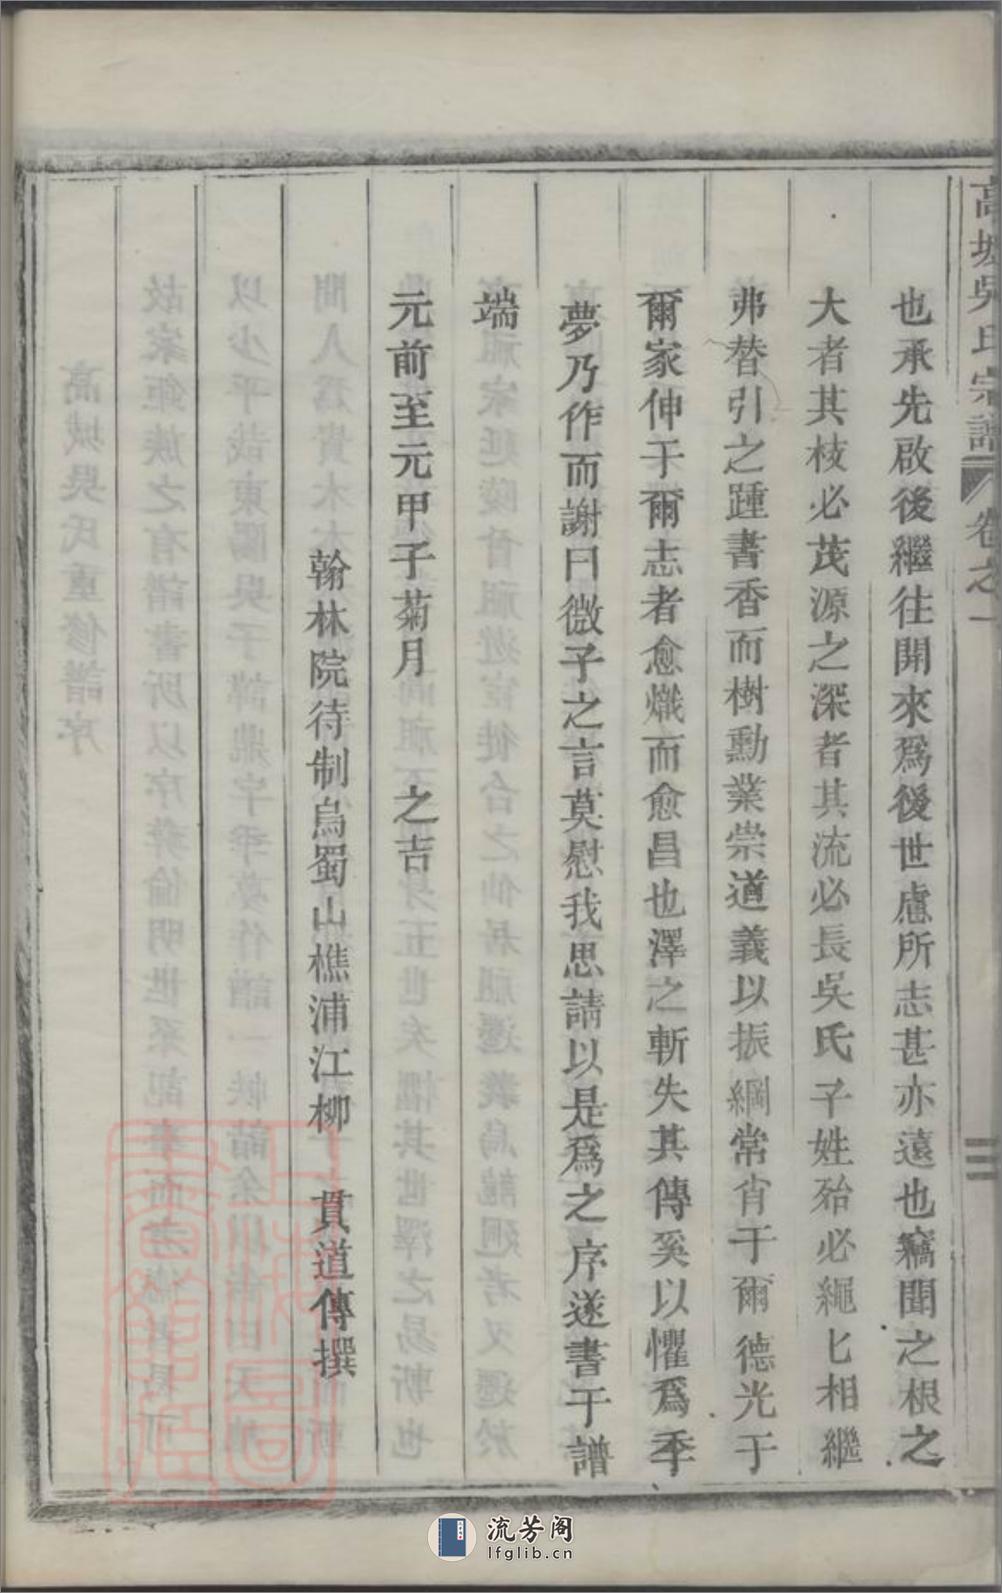 高城吳氏宗譜 卷之一
也承先啟後繼往開來爲後世慮所志甚亦遠也竊聞之根之
大者其枝必茂源之深者其流必長吳氏子姓殆必繩匕相繼
弗替引之踵書香而樹勳業崇道義以振綱常肯于爾德光于
爾家伸于爾志者愈熾而愈昌也澤之斬失其傳奚以懼爲季
夢乃作而謝曰微子之言莫慰我思請以是爲之序遂書于譜
端
元前至元甲子菊月 之吉
翰林院待制烏蜀山樵浦江柳 貫道傳撰
流芳阁
lfglib.cn